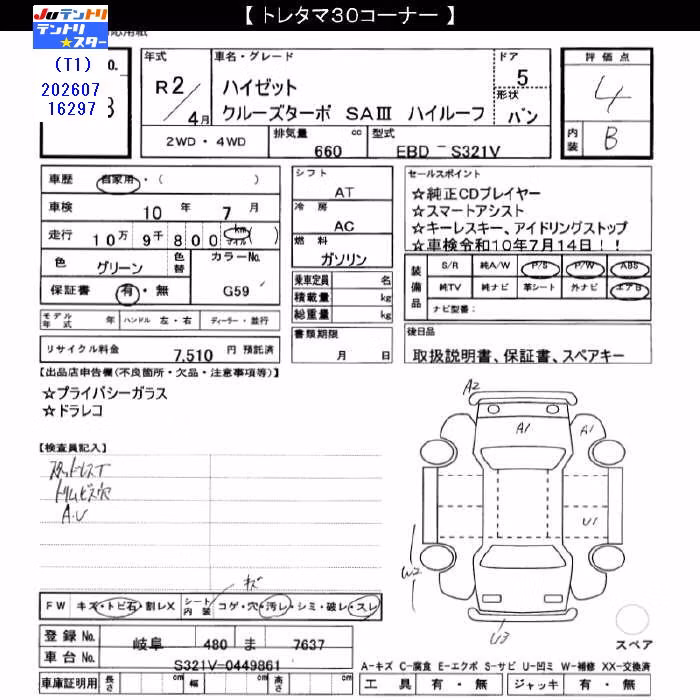 【 トレタマ30コーナー 】
JUテントリ
テントリ★スター
応用紙
(T1)
202607
16297
No.
3
年式
R2/4月
車名・グレード
ハイゼット
クルーズターボ SAⅢ ハイルーフ
ドア
5
形状
バン
評価点
4
内装
B
2WD・4WD
排気量 660 cc
型式 EBD- S321V
車歴 自家用・( )
車検 10 年 7 月
走行 10万 9千 800 km マイル ( )
色 グリーン 色替
カラーNo. G59
保証書 有・無
モデル年式 年 ハンドル 左・右 ディーラー・並行
リサイクル料金 7,510 円 預託済
シフト
AT
冷房
AC
燃料
ガソリン
乗車定員 名
積載量 kg
総重量 kg
書類期限
月 日
セールスポイント
☆純正CDプレイヤー
☆スマートアシスト
☆キーレスキー、アイドリングストップ
☆車検令和10年7月14日!!
装備品
S/R 純A/W P/S P/W ABS
純TV 純ナビ 革シート 外ナビ エアB
ナビ型番:
後日品
取扱説明書、保証書、スペアキー
【出品店申告欄(不良箇所・欠品・注意事項等)】
☆プライバシーガラス
☆ドラレコ
【検査員記入】
トリムビス穴
A.U
A2
A1
A1
U1
W2
U3
キズ
FW キズ・トビ石・割レX シート内装 コゲ・穴・汚レ・シミ・破レ・スレ
登録No. 岐阜 480 ま 7637
車台No. S321V-0449861
車庫証明用 長さ cm 幅 cm 高さ cm
スペア
A-キズ C-腐食 E-エクボ S-サビ U-凹ミ W-補修 XX-交換済
工具 有・無 ジャッキ 有・無